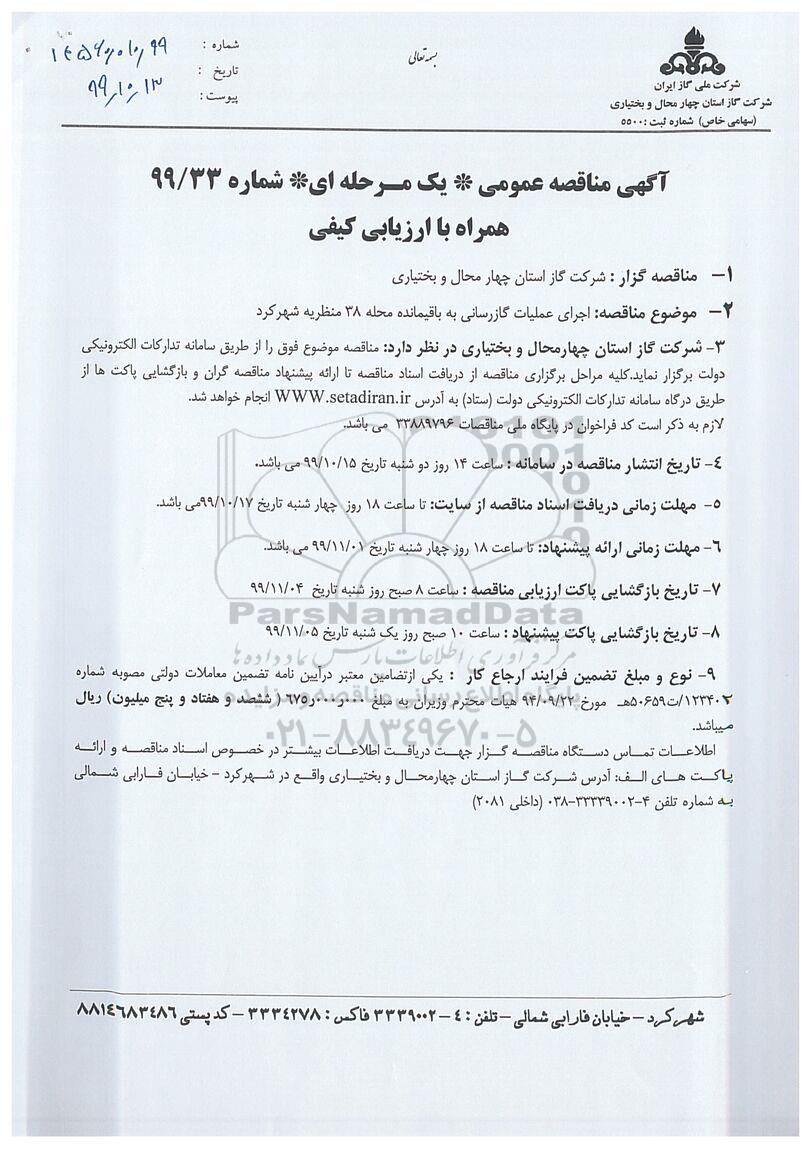 بسمه تعالی
شرکت ملی گاز ایران
شرکت گاز استان چهار محال و بختیاری
(سهامی خاص) شماره ثبت :۵۵۰۰
شماره :
تاریخ : ۹۹٫۱۰٫۱۳
پیوست :
آگهی مناقصه عمومی * یک مـــرحله ای* شماره ۹۹/۳۳
همراه با ارزیابی کیفی
۱- مناقصه گزار : شرکت گاز استان چهار محال و بختیاری
۲- موضوع مناقصه: اجرای عملیات گازرسانی به باقیمانده محله ۳۸ منظریه شهرکرد
۳- شرکت گاز استان چهارمحال و بختیاری در نظر دارد: مناقصه موضوع فوق را از طریق سامانه تدارکات الکترونیکی
دولت برگزار نماید.کلیه مراحل برگزاری مناقصه از دریافت اسناد مناقصه تا ارائه پیشنهاد مناقصه گران و بازگشایی پاکت ها از
طریق درگاه سامانه تدارکات الکترونیکی دولت (ستاد) به آدرس WWW.setadiran.ir انجام خواهد شد.
لازم به ذکر است کد فراخوان در پایگاه ملی مناقصات ۳۳۸۸۹۷۹۶ می باشد.
۴- تاریخ انتشار مناقصه در سامانه : ساعت ۱۴ روز دو شنبه تاریخ ۹۹/۱۰/۱۵ می باشد.
۵- مهلت زمانی دریافت اسناد مناقصه از سایت: تا ساعت ۱۸ روز چهار شنبه تاریخ ۹۹/۱۰/۱۷می باشد.
۶- مهلت زمانی ارائه پیشنهاد: تا ساعت ۱۸ روز چهار شنبه تاریخ ۹۹/۱۱/۰۱ می باشد.
۷- تاریخ بازگشایی پاکت ارزیابی مناقصه : ساعت ۸ صبح روز شنبه تاریخ ۹۹/۱۱/۰۴
ParsNamadData
۸- تاریخ بازگشایی پاکت پیشنهاد : ساعت ۱۰ صبح روز یک شنبه تاریخ ۹۹/۱۱/۰۵
مرکز فرآوری اطلاعات پارس نماد داده ها
۹- نوع و مبلغ تضمین فرایند ارجاع کار : یکی ازتضامین معتبر درآیین نامه تضمین معاملات دولتی مصوبه شماره
۱۲۳۴۰۲/ت۵۰۶۵۹هـ مورخ ۹۴/۰۹/۲۲ هیات محترم وزیران به مبلغ ۶۷۵٫۰۰۰٫۰۰۰ ( ششصد و هفتاد و پنج میلیون) ریال
میباشد.
پایگاه اطلاع رسانی مناقصه و مزایده
۰۲۱-۸۸۳۴۹۶۷۰-۵
اطلاعات تماس دستگاه مناقصه گزار جهت دریافت اطلاعات بیشتر در خصوص اسناد مناقصه و ارائه
پاکت های الف: آدرس شرکت گاز استان چهارمحال و بختیاری واقع در شهرکرد - خیابان فارابی شمالی
به شماره تلفن ۴-۰۳۸-۳۳۳۳۹۰۰۲ (داخلی ۲۰۸۱)
شهرکرد - خیابان فارابی شمالی - تلفن : ۴ - ۳۳۳۹۰۰۲ فاکس : ۳۳۳۴۲۷۸ - کد پستی ۸۸۱۴۶۸۳۴۸۶